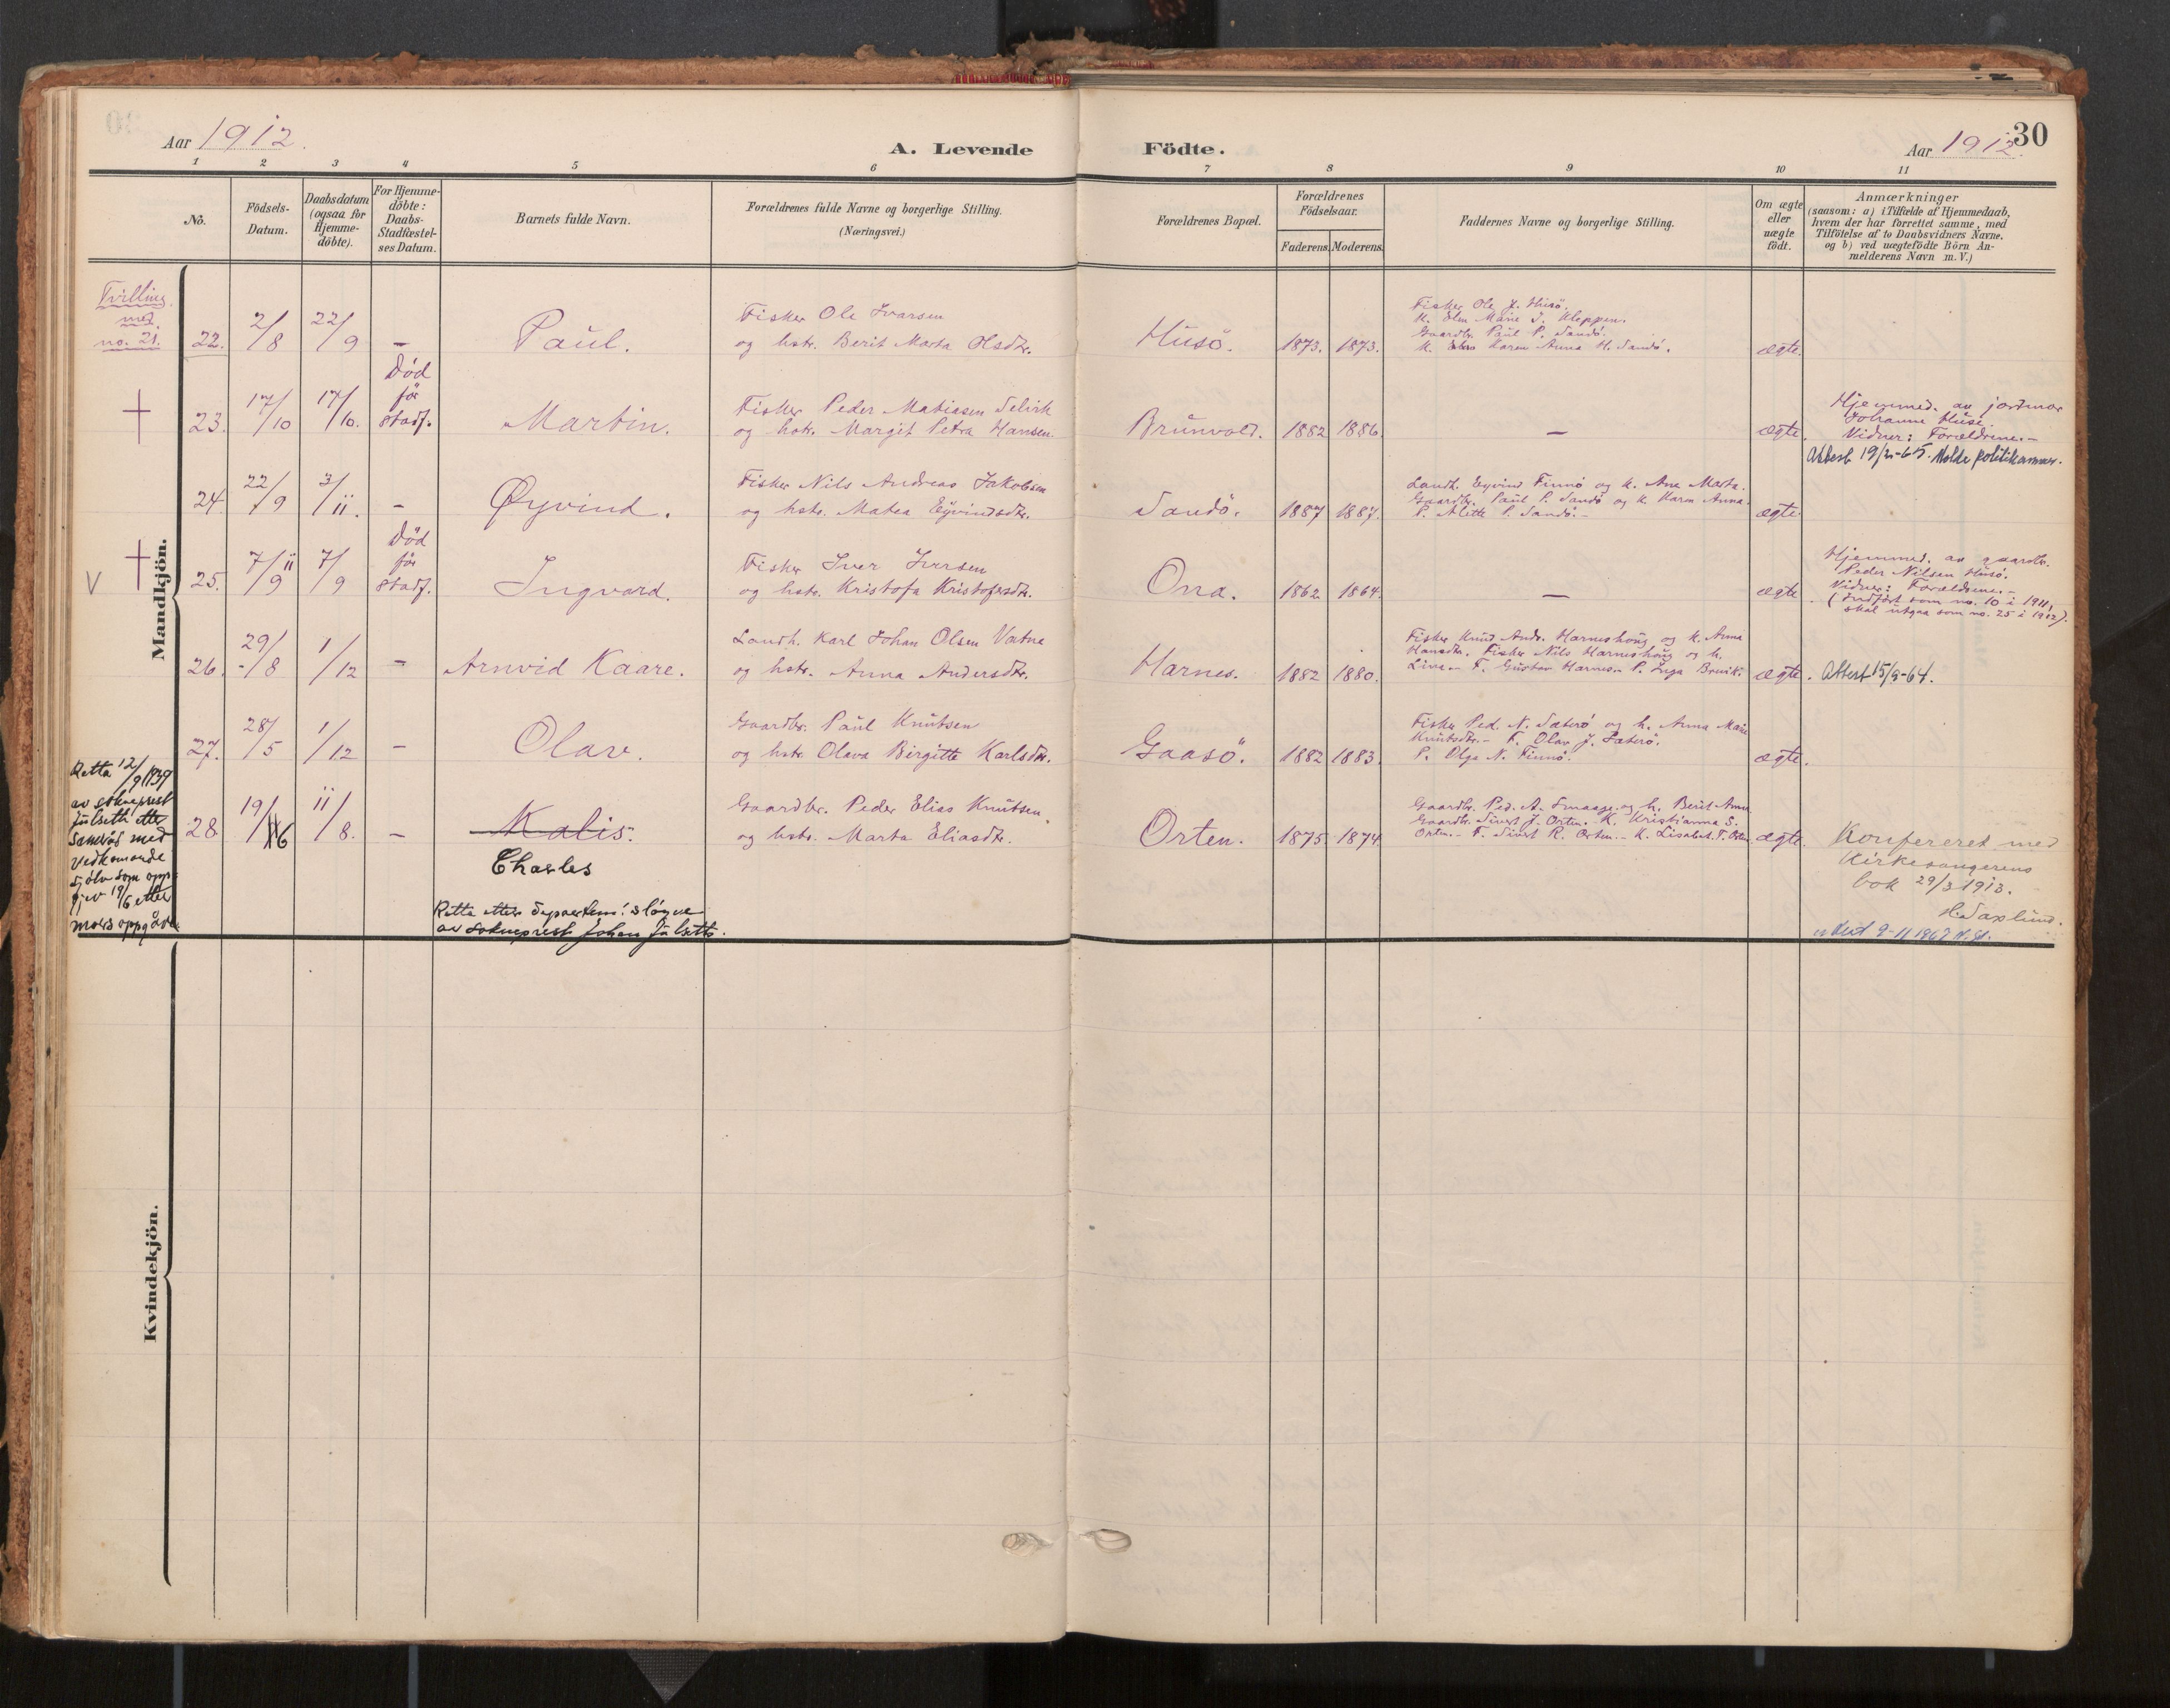 Aar 1912.
A. Levende Födte.
Aar 1912.
30
1 2 3 4 5 6 7 8 9 10 11
No.
Födsels-
Datum.
Daabsdatum
(ogsaa för
Hjemme-
döbte).
For Hjemme-
döbte:
Daabs-
Stadfæstel-
ses Datum.
Barnets fulde Navn.
Forældrenes fulde Navne og borgerlige Stilling.
(Næringsvei.)
Forældrenes Bopæl.
Forældrenes
Födselsaar.
Faderens. Moderens.
Faddernes Navne og borgerlige Stilling.
Om ægte
eller
uægte
födt.
Anmærkninger
(saasom: a) i Tilfælde af Hjemmedaab,
hvem der har forrettet samme, med
Tilföielse af to Daabsvidners Navne,
og b) ved uægtefödte Börn An-
melderens Navn m. V.)
Mandkjön.
Tvilling
med
no. 21.
22. 2/8 22/9 – Paul.
Fisker Ole Ivarsen
og hstr. Berit Marta Olsdtr.
Husö. 1873. 1873.
Fisker Ole J. Husö.
K. Elen Marie J. Kleppen.
Gaardbr. Paul P. Sandö.
K. Karen Anna H. Sandö.
ægte.
23. 17/10 17/10.
Död
för
stadf.
Martin.
Fisker Peder Matiasen Selvik
og hstr. Margit Petra Hansen.
Brunvold. 1882 1886. – ægte.
Hjemmed. av jordmor
Johanne Huse.
Vidner: Forældrene.–
Attest 19/2-65. Molde politikammer.
24. 22/9 3/11. – Øyvind.
Fisker Nils Andreas Jakobsen
og hstr. Matea Eyvindsdtr.
Sandö. 1887 1887.
Landh. Eyvind Finnö og k. Ane Marta.
Gaardbr. Paul P. Sandö og k. Karen Anna.
P. Alette P. Sandö.–
ægte.
V
25. 7/9 11 7/9
Död
för
stadf.
Ingvard.
Fisker Iver Iversen
og hstr. Kristofa Kristofersdtr.
Ona. 1862 1864. – ægte.
Hjemmed. av gaardbr.
Peder Nilsen Husö.
Vidner: Forældrene.–
(Indfört som no. 10 i 1911,
skal utgaa som no. 25 i 1912).
26. 29/8 1/12 – Arnvid Kaare.
Landh. Karl Johan Olsen Vatne
og hstr. Anna Andersdtr.
Harnes. 1882 1880.
Fisker Knud Andr. Harneshaug og k. Anna
Hansdtr. Fisker Nils Harneshaug og k.
Line.– F. Gustav Harnes.– P. Inga Breivik.
ægte. Attest 15/9-64.
27. 28/5 1/12 – Olav.
Gaardbr. Paul Knutsen
og hstr. Olava Birgitte Karlsdtr.
Gaasö. 1882 1883.
Fisker Ped. N. Sæterö og k. Anna Marie
Knutsdtr.– F. Olav J. Sæterö.
P. Olga N. Finnö.
ægte.
Retta 12/9 1939
av sokneprest
Julseth etter
samråd med
vedkomande
sjölv som opp-
gjev 19/6 etter
mors oppgåve.
28. 19/6 11/8. – Kalis.
Charles
Retta etter departem. 's löyve
av sokneprest Johan Julseth.
Gaardbr. Peder Elias Knutsen.
og hstr. Marta Eliasdtr.
Orten. 1875. 1874
Gaardbr. Ped. A. Smaage og k. Berit Anna.
Gaardbr. Sivert J. Orten. K. Kristianna S.
Orten.– F. Sivert R. Orten.– K. Lisabet T. Orten.
ægte.
Konfereret med
Kirkesangerens
bok 29/3 1913.
H. Saxlund.
attest 9-11 1967
Kvindekjön.